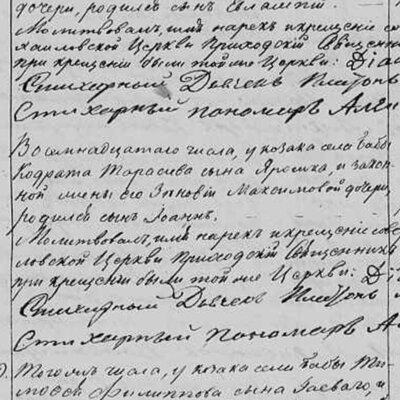 дочери, родился сынъ Евлампій.
Молитвовалъ, имя нарекъ и крещеніе со
хаиловской Церкви Приходскій Священн
при крещеніи были той же Церкви: Діа
Стихарный Дьячекъ Платонъ
Стихарный пономарь Але
Восемнадцатаго числа, у козака села Бабы
Кодрата Тарасіева сына Ярошка, и закон
ной жены его Зиновіи Максимовой дочери,
родился сынъ Іоаннъ.
Молитвовалъ, имя нарекъ и крещеніе сове
ловской Церкви Приходскій Священникъ
при крещеніи были той же Церкви: Ді
Стихарный Дьячекъ Платонъ
Стихарный пономарь Ал
Тогожъ числа, у козака села Бабы Ти
мофея Филиппова сына Гаеваго, и